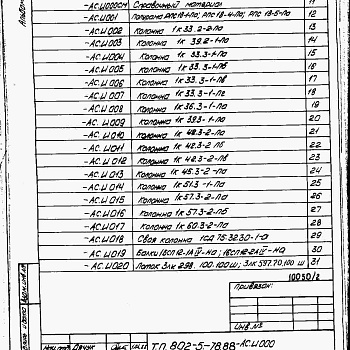 -АС.И000СМ Справочный материал 11
-АС.И001 12
-АС.И002 Колонна 1К 33.2-2-Па 13
-АС.И003 Колонна 1К 39.2-1-Па
-АС.И004 Колонна 1К 33.3-1-Па 15
-АС.И005 Колонна 1К 33.3-1-Пб 16
-АС.И006 Колонна 1К 33.3-1-Пв 17
-АС.И007 Колонна 1К 33.3-1-Пг 18
-АС.И008 Колонна 1К 36.3-1-Па 19
-АС.И009 Колонна 1К 39.3-1-Па 20
-АС.И010 Колонна 1К 42.3-2-Па 21
-АС.И011 Колонна 1К 42.3-2-Пб 22
-АС.И012 Колонна 1К 42.3-2-Пв 23
-АС.И013 Колонна 1К 45.3-2-Па 24
-АС.И014 Колонна 1К 51.3-1-Па 25
-АС.И015 Колонна 1К 57.3-2-Па 26
-АС.И016 Колонна 1К 57.3-2-Пб 27
-АС.И017 Колонна 1К 60.3-2-Па 28
-АС.И018 Свая колонна 1СД 75.3230-1-а 29
-АС.И019 Балки 30
-АС.И020 Лоток 31
10050/2
Привязан:
Инв.№
Т.П. 802-5-78.88-АС.И000